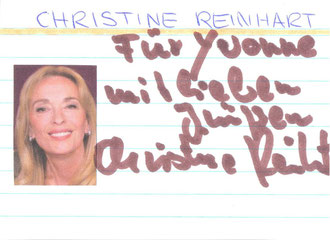 CHRISTINE REINHART
Für Yvonne
mit lieben
Grüßen
Christine